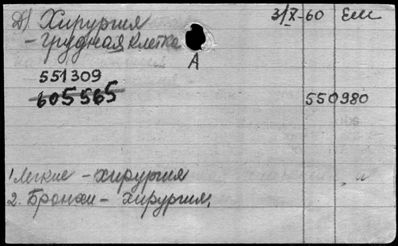 Д) Хирургия 3/X-60 Елс
- грудная клетка
А
551309
605565 550980
1. Легкие - хирургия "
2. Бронхи - хирургия,